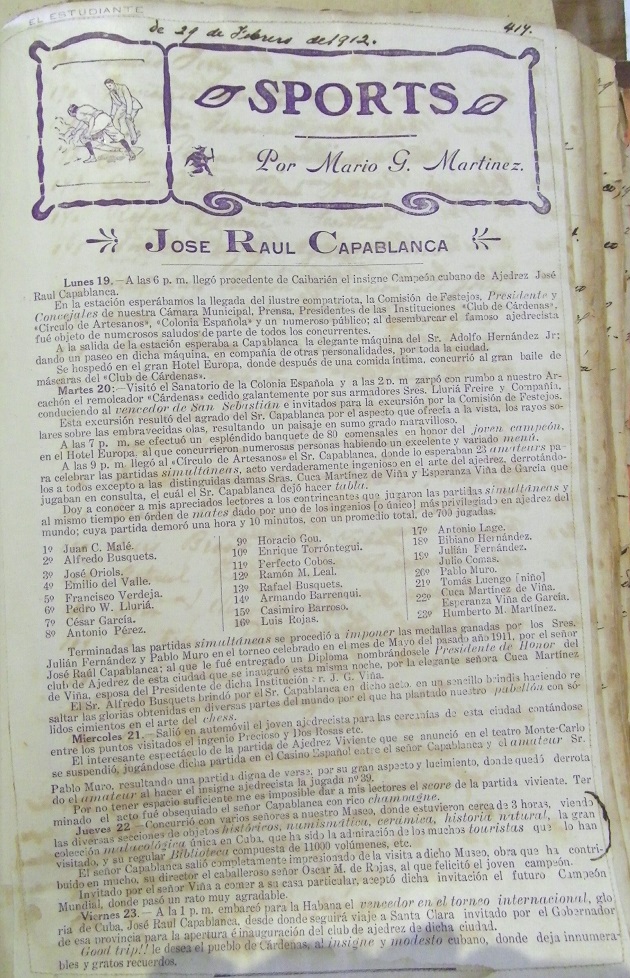 EL ESTUDIANTE
de 29 de Febrero de 1912.
417.
SPORTS
Por Mario G. Martinez.
JOSE RAUL CAPABLANCA
Lunes 19.—A las 6 p. m. llegó procedente de Caibarién el insigne Campeón cubano de Ajedrez José
Raul Capablanca.
En la estación esperábamos la llegada del ilustre compatriota, la Comisión de Festejos, Presidente y
Concejales de nuestra Cámara Municipal, Prensa, Presidentes de las Instituciones «Club de Cárdenas»,
«Círculo de Artesanos», «Colonia Española» y un numeroso público; al desembarcar el famoso ajedrecista
fué objeto de numerosos saludos de parte de todos los concurrentes.
A la salida de la estación esperaba a Capablanca la elegante máquina del Sr. Adolfo Hernández Jr;
dando un paseo en dicha máquina, en compañía de otras personalidades, por toda la ciudad.
Se hospedó en el gran Hotel Europa, donde después de una comida íntima, concurrió al gran baile de
máscaras del «Club de Cárdenas».
Martes 20:—Visitó el Sanatorio de la Colonia Española y a las 2 p. m zarpó con rumbo a nuestro Ar-
cachón el remolcador «Cárdenas» cedido galantemente por sus armadores Sres. Lluria Freire y Compañía,
conduciendo al vencedor de San Sebastián e invitados para la excursión por la Comisión de Festejos.
Esta excursión resultó del agrado del Sr. Capablanca por el aspecto que ofrecía a la vista, los rayos so-
lares sobre las embravecidas olas, resultando un paisaje en sumo grado maravilloso.
A las 7 p. m. se efectuó un espléndido banquete de 80 comensales en honor del joven campeón,
en el Hotel Europa, al que concurrieron numerosas personas habiendo un excelente y variado menú.
A las 9 p. m. llegó al «Círculo de Artesanos» el Sr. Capablanca, donde lo esperaban 23 amateurs pa-
ra celebrar las partidas simultáneas, acto verdaderamente ingenioso en el arte del ajedrez, derrotándo-
los a todos excepto a las distinguidas damas Sras. Cuca Martínez de Viña y Esperanza Viña de García que
jugaban en consulta, el cuál el Sr. Capablanca dejó hacer tabla.
Doy a conocer a mis apreciados lectores a los contrincantes que jugaron las partidas simultáneas y
al mismo tiempo en órden de mates dado por uno de los ingenios [o único] más privilegiado en ajedrez del
mundo; cuya partida demoró una hora y 10 minutos, con un promedio total, de 700 jugadas.
1º Juan C. Malé.
2º Alfredo Busquets.
3º José Oriols.
4º Emilio del Valle.
5º Francisco Verdeja.
6º Pedro W. Lluriá.
7º César García.
8º Antonio Pérez.
9º Horacio Gou.
10º Enrique Torróntegui.
11º Perfecto Cobos.
12º Ramón M. Leal.
13º Rafael Busquets.
14º Armando Barrenqui.
15º Casimiro Barroso.
16º Luis Rojas.
17º Antonio Lage.
18º Bibiano Hernández.
Julián Fernández.
19º Julio Comas.
20º Pablo Muro.
21º Tomás Luengo [niño]
22º Cuca Martínez de Viña.
Esperanza Viña de García.
23º Humberto M. Martínez.
Terminadas las partidas simultáneas se procedió a imponer las medallas ganadas por los Sres.
Julián Fernández y Pablo Muro en el torneo celebrado en el mes de Mayo del pasado año 1911, por el señor
José Raúl Capablanca; al que le fué entregado un Diploma nombrándosele Presidente de Honor del
club de Ajedrez de esta ciudad que se inauguró esta misma noche, por la elegante señora Cuca Martínez
de Viña, esposa del Presidente de dicha Institución Sr. J. G. Viña.
El Sr. Alfredo Busquets brindó por el Sr. Capablanca en dicho acto, en un sencillo brindis haciendo re
saltar las glorias obtenidas en diversas partes del mundo por el que ha plantado nuestro pabellón con só-
lidos cimientos en el arte del chess.
Miercoles 21.—Salió en automóvil el joven ajedrecista para las cercanías de esta ciudad contándose
entre los puntos visitados el ingenio Precioso y Dos Rosas etc.
El interesante espectáculo de la partida de Ajedrez Viviente que se anunció en el teatro Monte-Carlo
se suspendió, jugándose dicha partida en el Casino Español entre el señor Capablanca y el amateur Sr.
Pablo Muro, resultando una partida digna de verse, por su gran aspecto y lucimiento, donde quedó derrota
do el amateur al hacer el insigne ajedrecista la jugada nº 39.
Por no tener espacio suficiente me es imposible dar a mis lectores el score de la partida viviente. Ter
minado el acto fué obsequiado el señor Capablanca con rico champagne.
Jueves 22—Concurrió con varios señores a nuestro Museo, donde estuvieron cerca de 3 horas, viendo
las diversas secciones de objetos históricos, numismática, cerámica, historia natural, la gran
colección malacológica única en Cuba, que ha sido la admiración de los muchos touristas que lo han
visitado, y su regular Biblioteca compuesta de 11000 volúmenes, etc.
El señor Capablanca salió completamente impresionado de la visita a dicho Museo, obra que ha contri-
buido en mucho, su director el caballeroso señor Oscar M. de Rojas, al que felicitó el joven campeón.
Invitado por el señor Viña a comer a su casa particular, aceptó dicha invitación el futuro Campeón
Mundial, donde pasó un rato muy agradable.
Viernes 23.—A la 1 p. m. embarcó para la Habana el vencedor en el torneo internacional, glo
ria de Cuba, José Raul Capablanca, desde donde seguirá viaje a Santa Clara invitado por el Gobernador
de esa provincia para la apertura é inauguración del club de ajedrez de dicha ciudad.
Good trip!! le desea el pueblo de Cárdenas, al insigne y modesto cubano, donde deja innumera-
bles y gratos recuerdos.